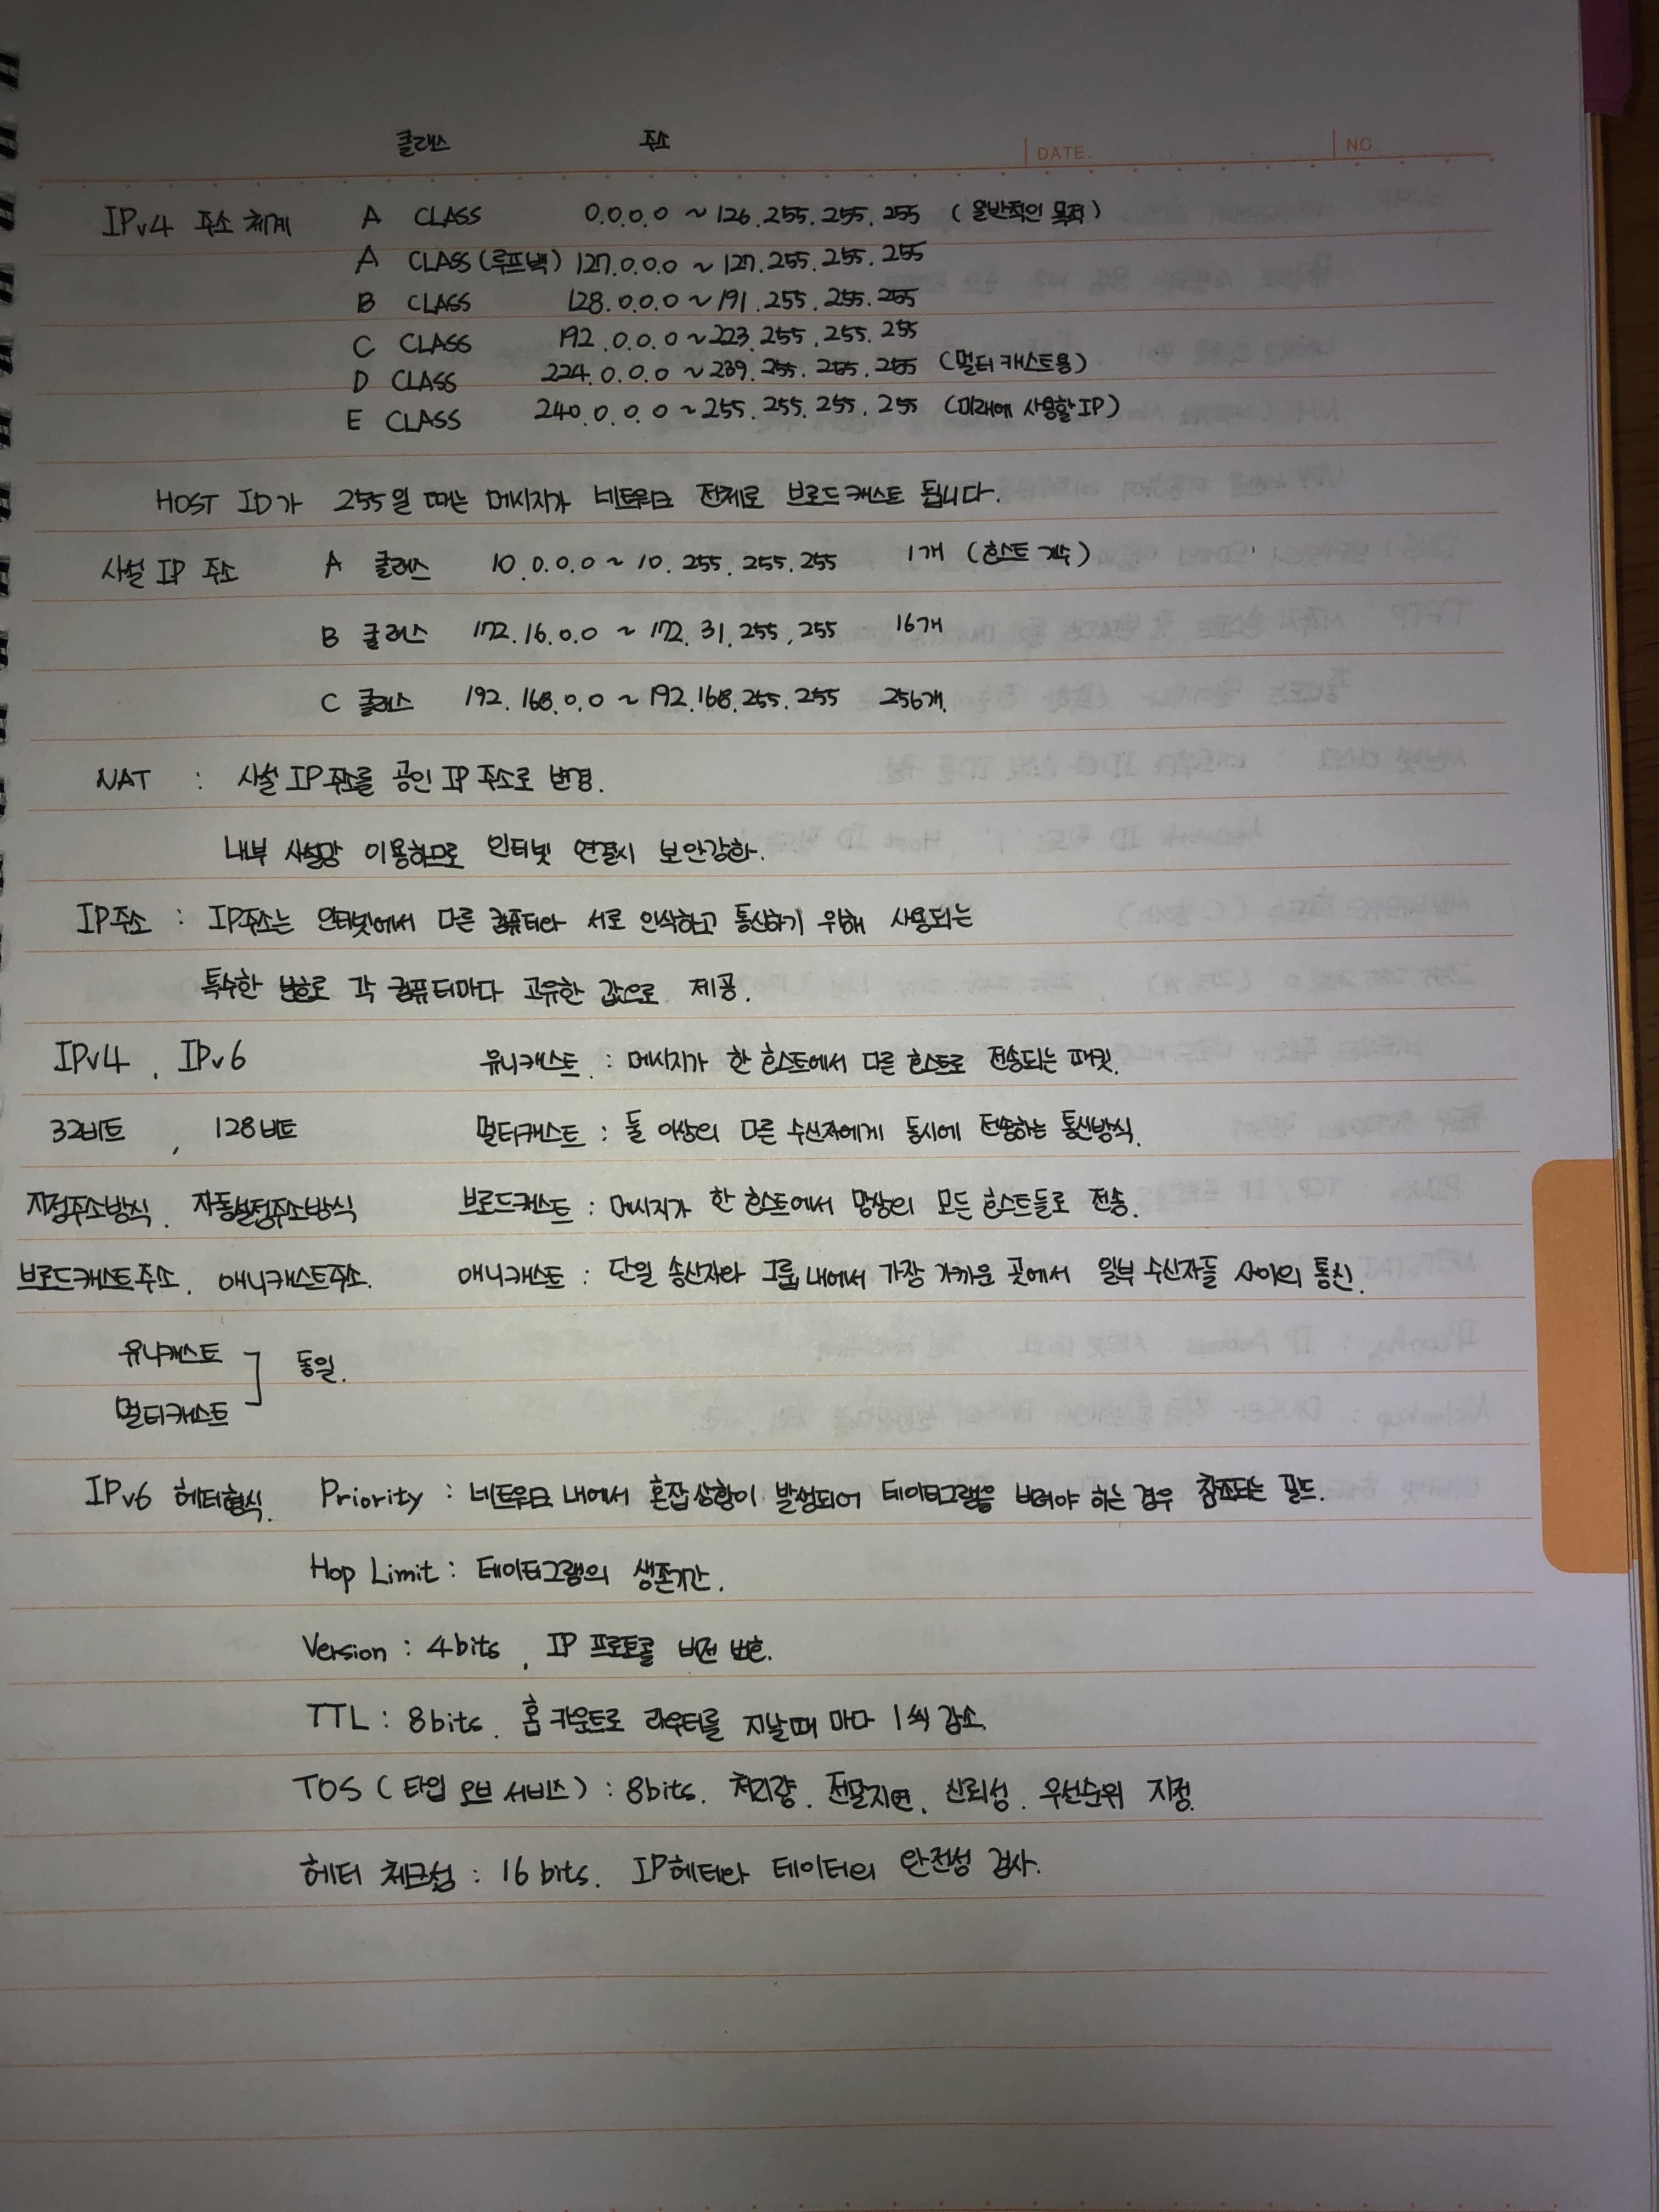 클래스 주소
DATE. NO.
IPv4 주소 체계 A CLASS 0.0.0.0 ~ 126.255.255.255 (일반적인 목적)
A CLASS (루프백) 127.0.0.0 ~ 127.255.255.255
B CLASS 128.0.0.0 ~ 191.255.255.255
C CLASS 192.0.0.0 ~ 223.255.255.255
D CLASS 224.0.0.0 ~ 239.255.255.255 (멀티캐스트용)
E CLASS 240.0.0.0 ~ 255.255.255.255 (미래에 사용할 IP)
HOST ID가 255일 때는 메시지가 네트워크 전체로 브로드캐스트 됩니다.
사설 IP 주소 A 클래스 10.0.0.0 ~ 10.255.255.255 1개 (호스트 개수)
B 클래스 172.16.0.0 ~ 172.31.255.255 16개
C 클래스 192.168.0.0 ~ 192.168.255.255 256개.
NAT : 사설 IP 주소를 공인 IP 주소로 변경.
내부 사설망 이용하므로 인터넷 연결시 보안강화.
IP주소 : IP주소는 인터넷에서 다른 컴퓨터와 서로 인식하고 통신하기 위해 사용되는
특수한 번호로 각 컴퓨터마다 고유한 값으로 제공.
IPv4 , IPv6 유니캐스트 : 메시지가 한 호스트에서 다른 호스트로 전송되는 패킷.
32비트 , 128비트 멀티캐스트 : 둘 이상의 다른 수신자에게 동시에 전송하는 통신방식.
지정주소방식, 자동설정주소방식 브로드캐스트 : 메시지가 한 호스트에서 망상의 모든 호스트들로 전송.
브로드캐스트주소, 애니캐스트주소. 애니캐스트 : 단일 송신자와 그룹 내에서 가장 가까운 곳에서 일부 수신자들 사이의 통신.
유니캐스트
동일.
멀티캐스트
IPv6 헤더형식. Priority : 네트워크 내에서 혼잡상황이 발생되어 데이터그램을 버려야 하는 경우 참조되는 필드.
Hop Limit : 데이터그램의 생존기간.
Version : 4bits , IP 프로토콜 버전 번호.
TTL : 8bits. 홉 카운트로 라우터를 지날때 마다 1씩 감소.
TOS (타입 오브 서비스) : 8bits. 처리량, 전달지연, 신뢰성, 우선순위 지정.
헤더 체크섬 : 16bits. IP헤더와 데이터의 안전성 검사.